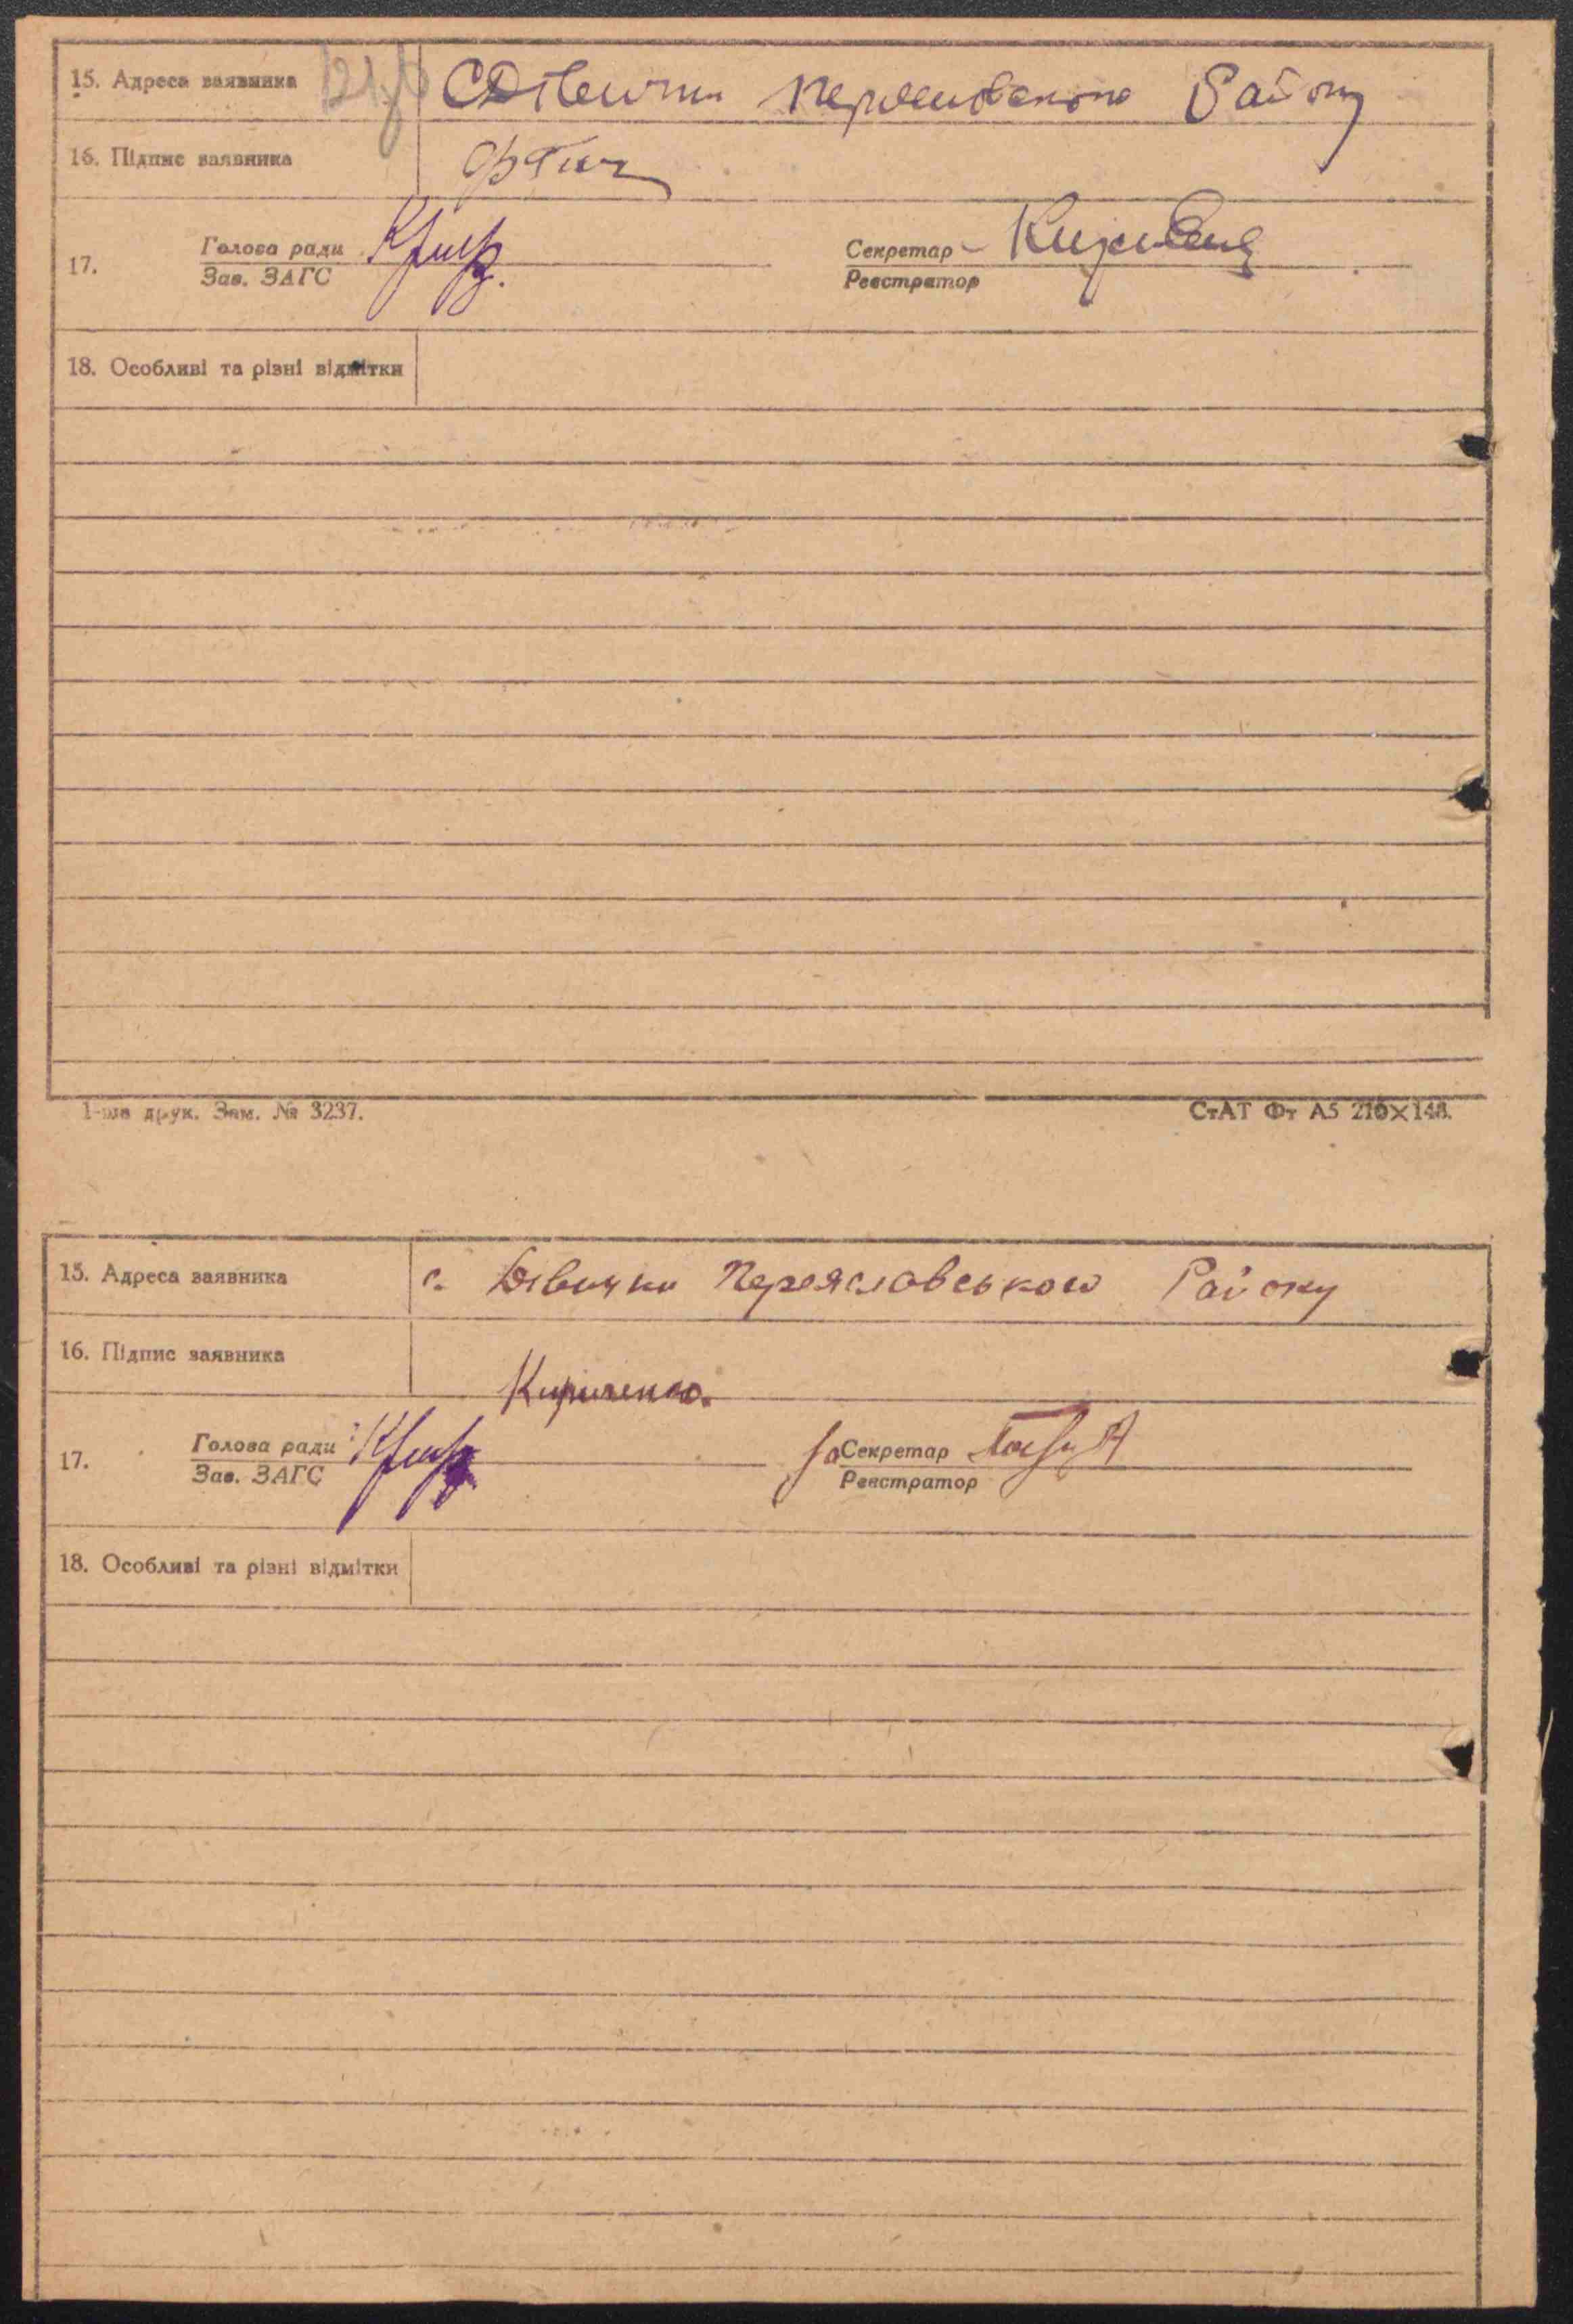 15. Адреса заявника С Дівички Переяславського Району
16. Підпис заявника
17. Голова ради Секретар
Зав. ЗАГС Реєстратор
18. Особливі та різні відмітки
1-ша друк. Зам. № 3237. СтАТ Фт А5 210×148.
15. Адреса заявника с. Дівички Переяславського Району
16. Підпис заявника Кириченко.
17. Голова ради За Секретар
Зав. ЗАГС Реєстратор
18. Особливі та різні відмітки